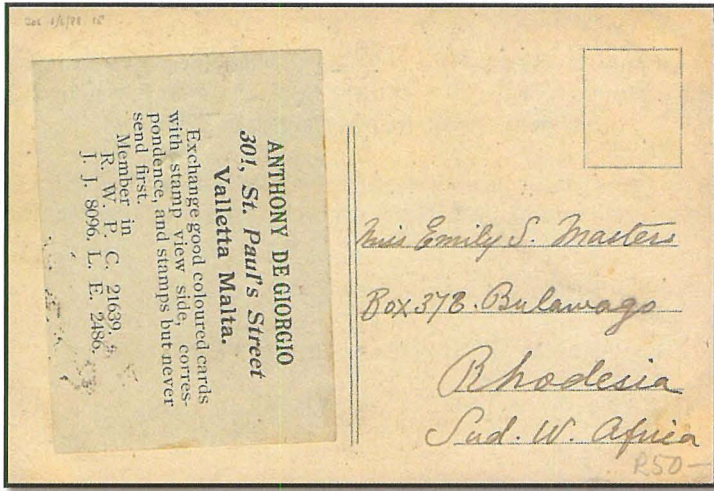 ANTHONY DE GIORGIO
301, St. Paul's Street
Valletta Malta.
Exchange good coloured cards
with stamp view side, corres-
pondence, and stamps but never
send first.
Member in
R. W. P. C. 21639,
J. J. 8096, L. E. 2486,
Miss Emily S. Masters
Box 378. Bulawago
Rhodesia
Sud. W. Africa
R50-